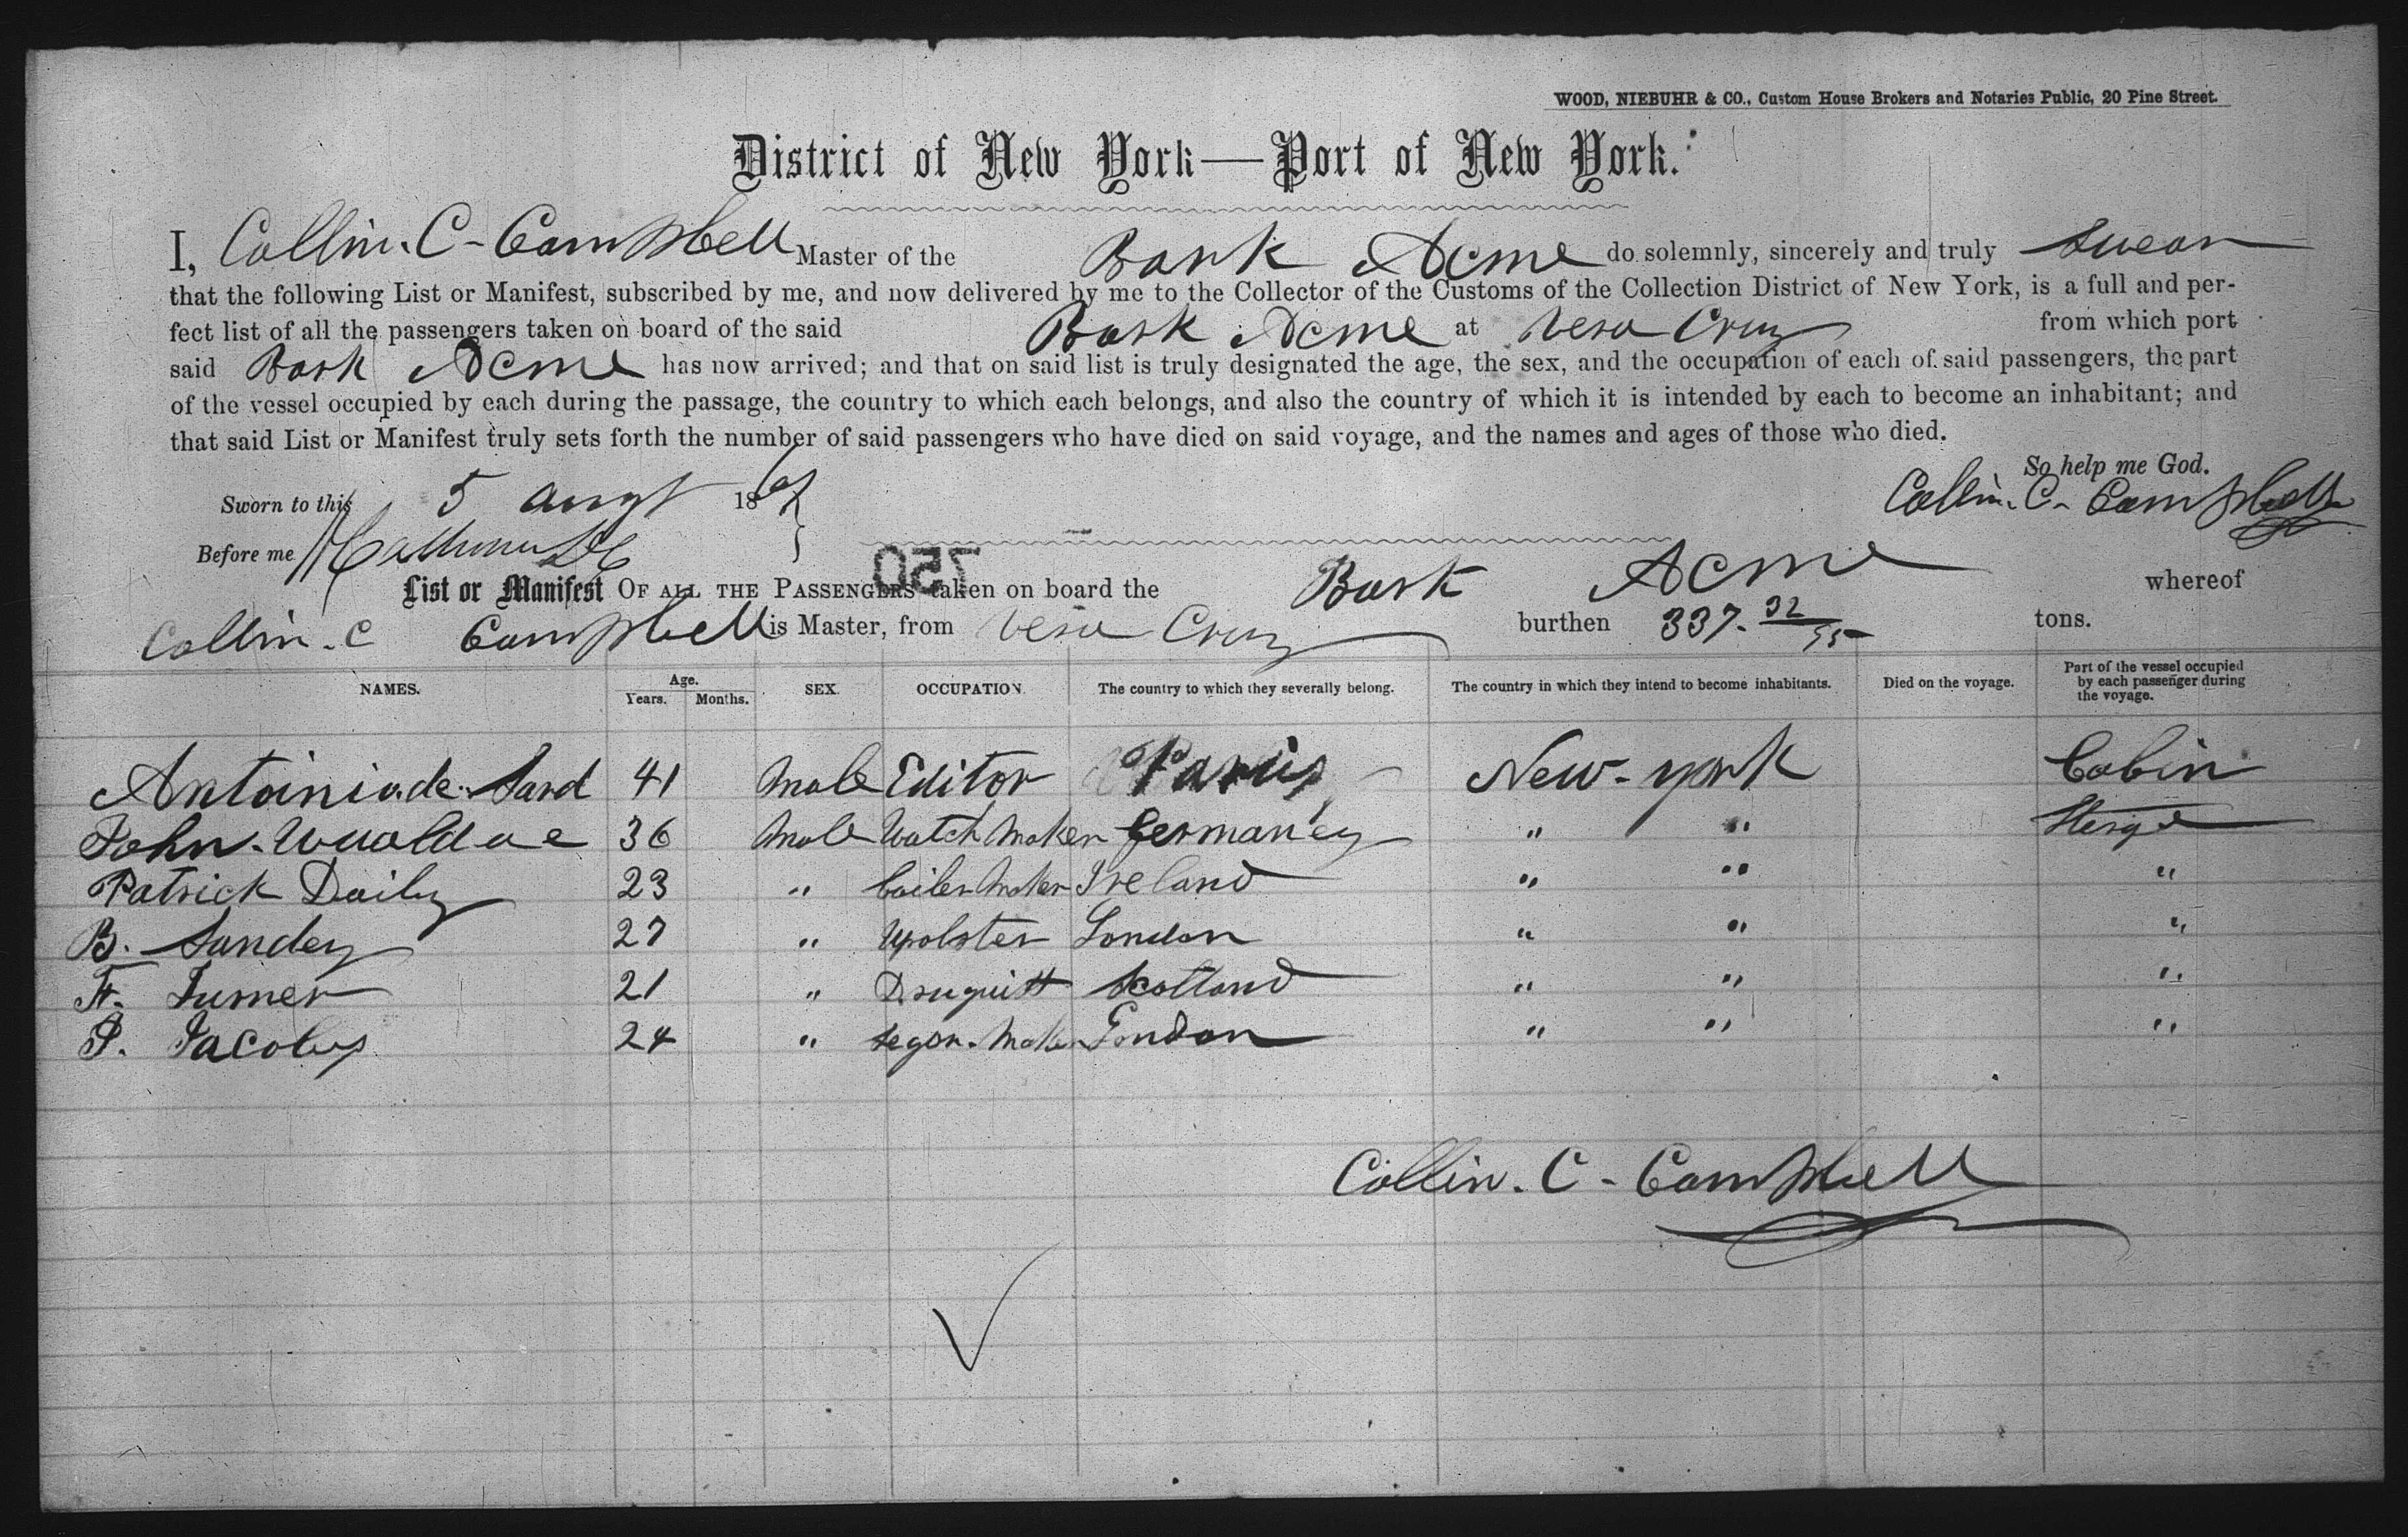 WOOD, NIEBUHR & CO., Custom House Brokers and Notaries Public, 20 Pine Street.
District of New York—Port of New York.
I, Collin. C - Campbell Master of the Bark Acme do solemnly, sincerely and truly swear
that the following List or Manifest, subscribed by me, and now delivered by me to the Collector of the Customs of the Collection District of New York, is a full and per-
fect list of all the passengers taken on board of the said Bark Acme at Vera Cruz from which port
said Bark Acme has now arrived; and that on said list is truly designated the age, the sex, and the occupation of each of said passengers, the part
of the vessel occupied by each during the passage, the country to which each belongs, and also the country of which it is intended by each to become an inhabitant; and
that said List or Manifest truly sets forth the number of said passengers who have died on said voyage, and the names and ages of those who died.
So help me God.
Sworn to this 5 Augt 186 Collin. C - Campbell
Before me
750
List or Manifest OF ALL THE PASSENGERS taken on board the Bark Acme whereof
Collin. C Campbell is Master, from Vera Cruz burthen 337. 32/95 tons.
NAMES. Age. Years. Months. SEX. OCCUPATION. The country to which they severally belong. The country in which they intend to become inhabitants. Died on the voyage. Part of the vessel occupied by each passenger during the voyage.
Antoinio.de. Sard 41 Male Editor Paris New-york Cabin
John. 36 Male Watch Maker Germaney " " Sterge
Patrick Daily 23 " Boiler Maker Ireland " " "
B. Sandey 27 " Upolster London " " "
F. Turner 21 " Druguist Scotland " " "
P. Jacobys 24 " Segar. Maker London " " "
Collin. C - Campbell